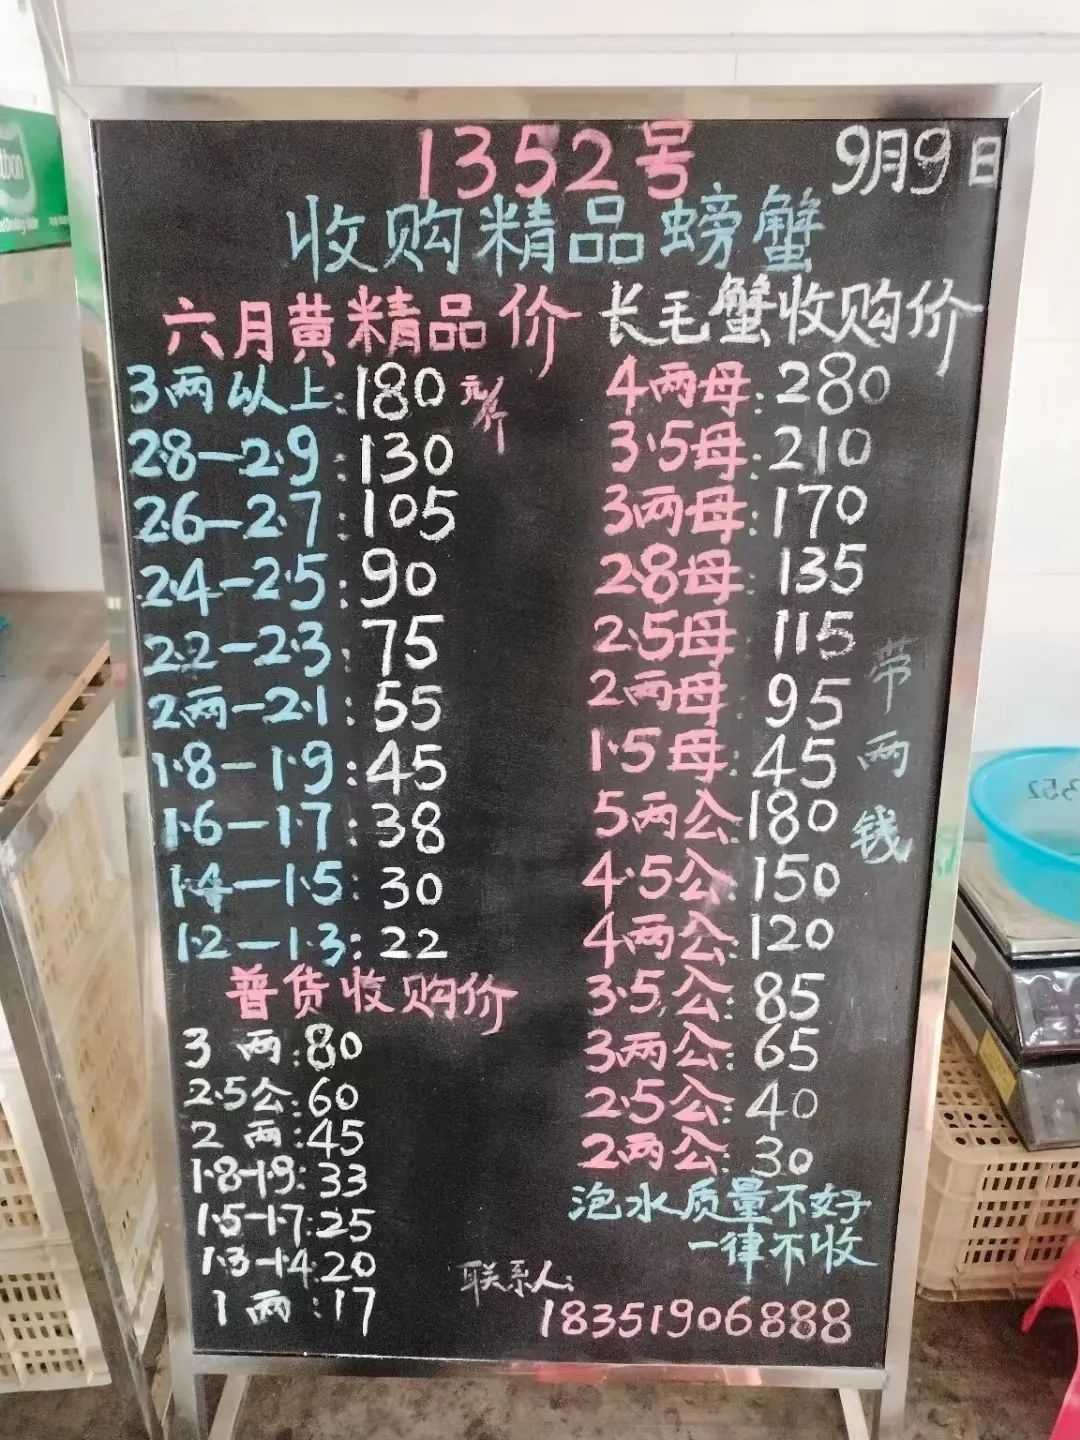 1352号 9月9日
收购精品螃蟹
六月黄精品价
3两以上:180元/斤
2.8—2.9:130
2.6—2.7:105
2.4—2.5:90
2.2—2.3:75
2两—2.1:55
1.8—1.9:45
1.6—1.7:38
1.4—1.5:30
1.2—1.3:22
普货收购价
3两:80
2.5公:60
2两:45
1.8-1.9:33
1.5-1.7:25
1.3-1.4:20
1两:17
长毛蟹收购价
4两母:280
3.5母:210
3两母:170
2.8母:135
2.5母:115
2两母:95
1.5母:45
5两公:180
4.5公:150
4两公:120
3.5公:85
3两公:65
2.5公:40
2两公:30
带两钱
泡水质量不好
一律不收
联系人:
18351906888